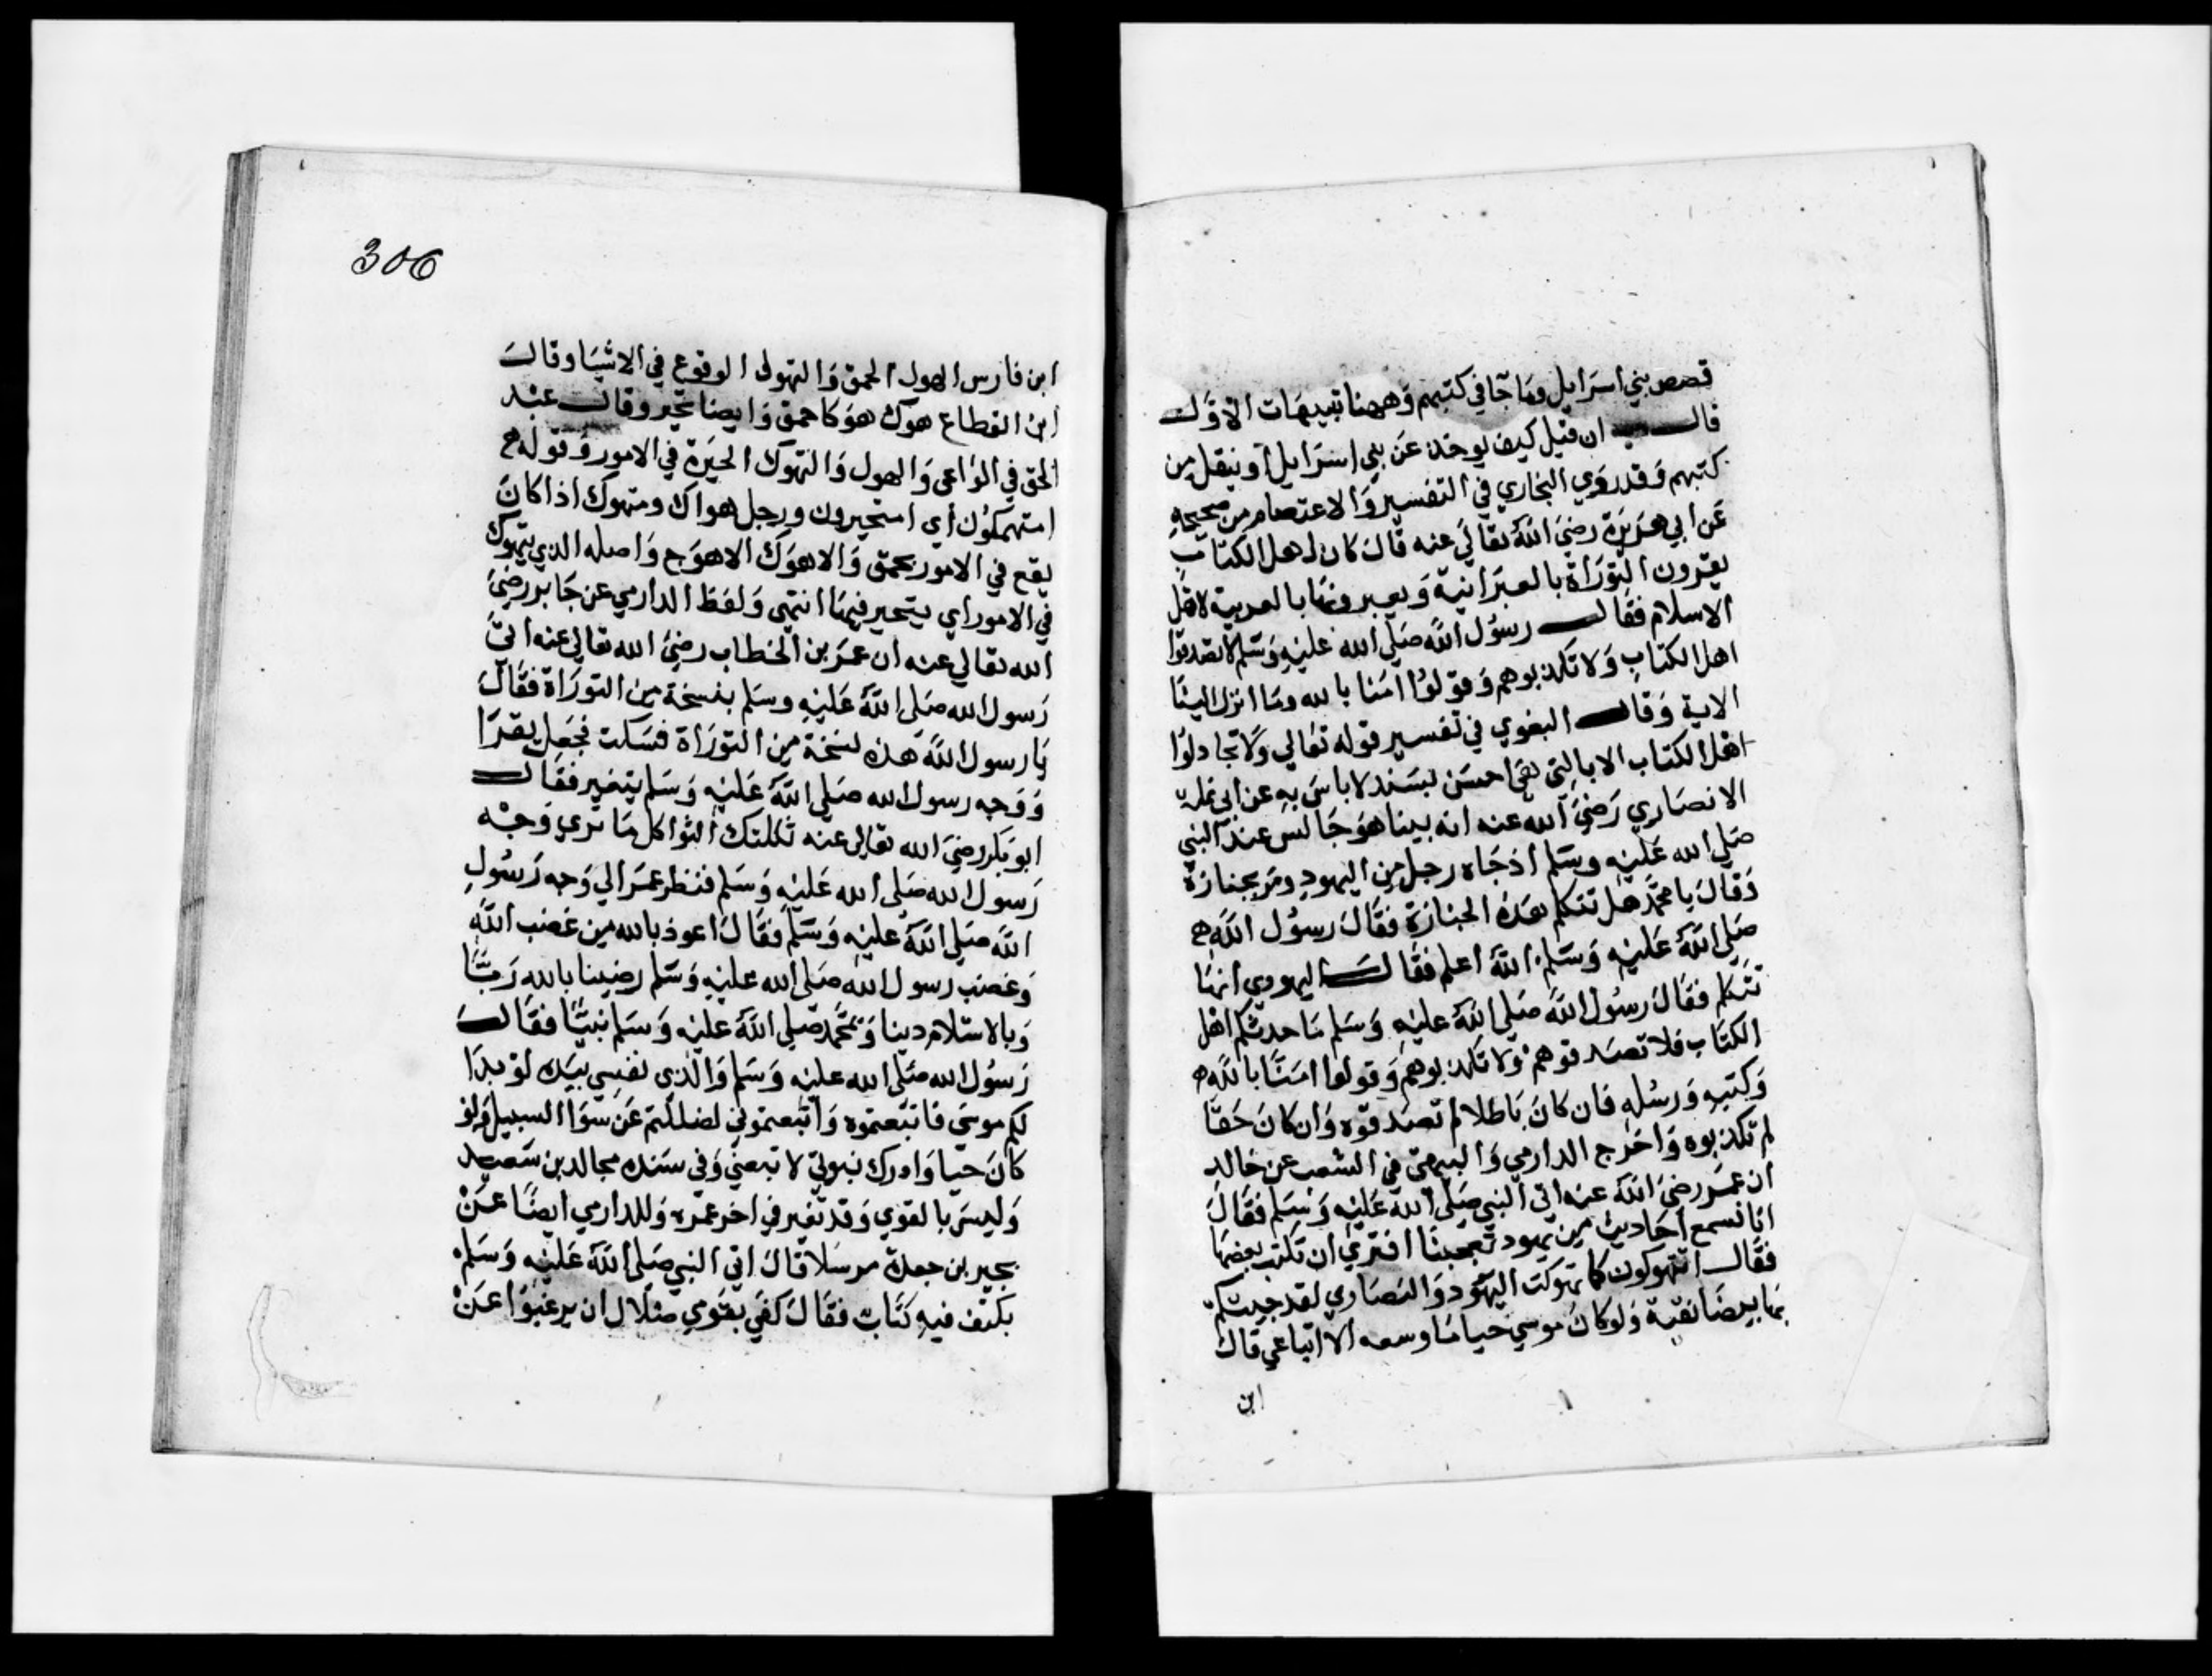 قصص بني اسرايل وما جآ في كتبهم وههنا تنبيهات الاول
قال ان قيل كيف يوخذ عن بني اسرايل او ينقل من
كتبهم وقد روي البخاري في التفسير والاعتصام من صحيحه
عن ابي هريرة رضي الله تعالي عنه قال كان اهل الكتاب
يقرون التوراة بالعبرانية ويعبرونها بالعربية لاهل
الاسلام فقال رسول الله صلي الله عليه وسلم لا تصدقوا
اهل الكتاب ولا تكذبوهم وقولوا امنا بالله وما انزل الينا
الاية وقال البغوي في تفسير قوله تعالي ولا تجادلوا
اهل الكتاب الا بالتي هي احسن بسند لا باس به عن ابي نملة
الانصاري رضي الله عنه انه بينا هو جالس عند النبي
صلي الله عليه وسلم اذ جاه رجل من اليهود ومر بجنازة
وقال يا محمد هل تتكلم هذه الجنازة فقال رسول الله
صلي الله عليه وسلم الله اعلم فقال اليهودي انها
تتكلم فقال رسول الله صلي الله عليه وسلم ما حدثكم اهل
الكتاب فلا تصدقوهم ولا تكذبوهم وقولوا امنا بالله
وكتبه ورسله فان كان باطلا لم تصدقوه وان كان حقا
لم تكذبوه واخرج الدارمي والبيهقي في الشعب عن خالد
ان عمر رضي الله عنه اتي النبي صلي الله عليه وسلم فقال
انا نسمع احاديث من يهود تعجبنا افتري ان نكتب بعضها
فقال اتتهوكون كما تهوكت اليهود والنصاري لقد جيتكم
بها بيضا نقية ولو كان موسي حيا ما وسعه الا اتباعي قال
ابن
306
ابن فارس الهول الحمق والتهول الوقوع في الاشيا وقال
ابن القطاع هوك هو كاحمق وايضا تحير وقال عبد
الحق في الواعي والهول والتهوك الحيرة في الامور وقوله
امتهمكون اي امتحيرون ورجل هواك ومتهوك اذا كان
يقع في الامور بحمق والاهوك الاهوج واصله الذي يتهوك
في الامور اي يتحير فيها انتهى ولفظ الدارمي عن جابر رضي
الله تعالي عنه ان عمر بن الخطاب رضي الله تعالي عنه اتي
رسول الله صلي الله عليه وسلم بنسخة من التوراة فقال
يا رسول الله هذه نسخة من التوراة فسكت فجعل يقرا
ووجه رسول الله صلي الله عليه وسلم يتغير فقال
ابو بكر رضي الله تعالي عنه ثكلتك الثواكل ما تري وجه
رسول الله صلي الله عليه وسلم فنظر عمر الي وجه رسول
الله صلي الله عليه وسلم فقال اعوذ بالله من غضب الله
وغضب رسول الله صلي الله عليه وسلم رضينا بالله ربا
وبالاسلام دينا وبمحمد صلي الله عليه وسلم نبيا فقال
رسول الله صلي الله عليه وسلم والذي نفسي بيده لو بدا
لكم موسى فاتبعتموه واتبعتموني لضللتم عن سوا السبيل ولو
كان حيا وادرك نبوتي لاتبعني وفي سنده مجالد بن سعيد
وليس بالقوي وقد تغير في اخر عمره وللدارمي ايضا عن
يحيى بن جعدة مرسلا قال اتي النبي صلي الله عليه وسلم
بكتف فيه كتاب فقال كفي بقوم ضلال ان يرغبوا عن